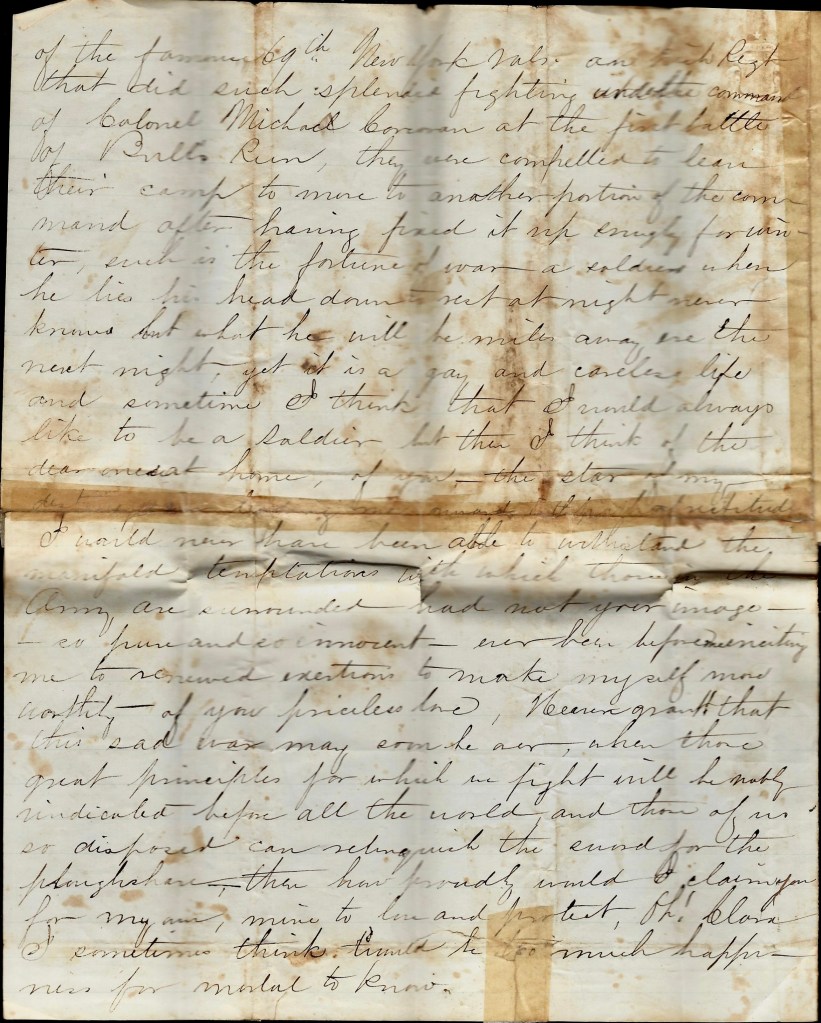 of the famous 69th New York Vols. an Irish Regt
that did such splendid fighting under the command
of Colonel Michael Corcoran at the first battle
of Bulls Run, they were compelled to leave
their camp to move to another portion of the com-
mand after having fixed it up snugly for win-
ter, such is the fortune of war a soldier when
he lies his head down to rest at night never
knows but what he will be miles away ere the
next night, yet it is a gay and careless life
and sometime I think that I would always
like to be a soldier but then I think of the
dear ones at home, of you — the star of my
I would never have been able to withstand the
manifold temptations with which those in the
Army are surrounded had not your image —
— so pure and so innocent — ever been before me inciting
me to renewed exertions to make myself more
worthily — of your priceless love, Heaven grant that
this sad war may soon be over, when those
great principles for which we fight will be nobly
vindicated before all the world and those of us
so disposed can relinquish the sword for the
ploughshare —, then how proudly would I claim you
for my own, mine to love and protect, Oh! Clara
I sometimes think t'would be too much happi-
ness for mortal to know.